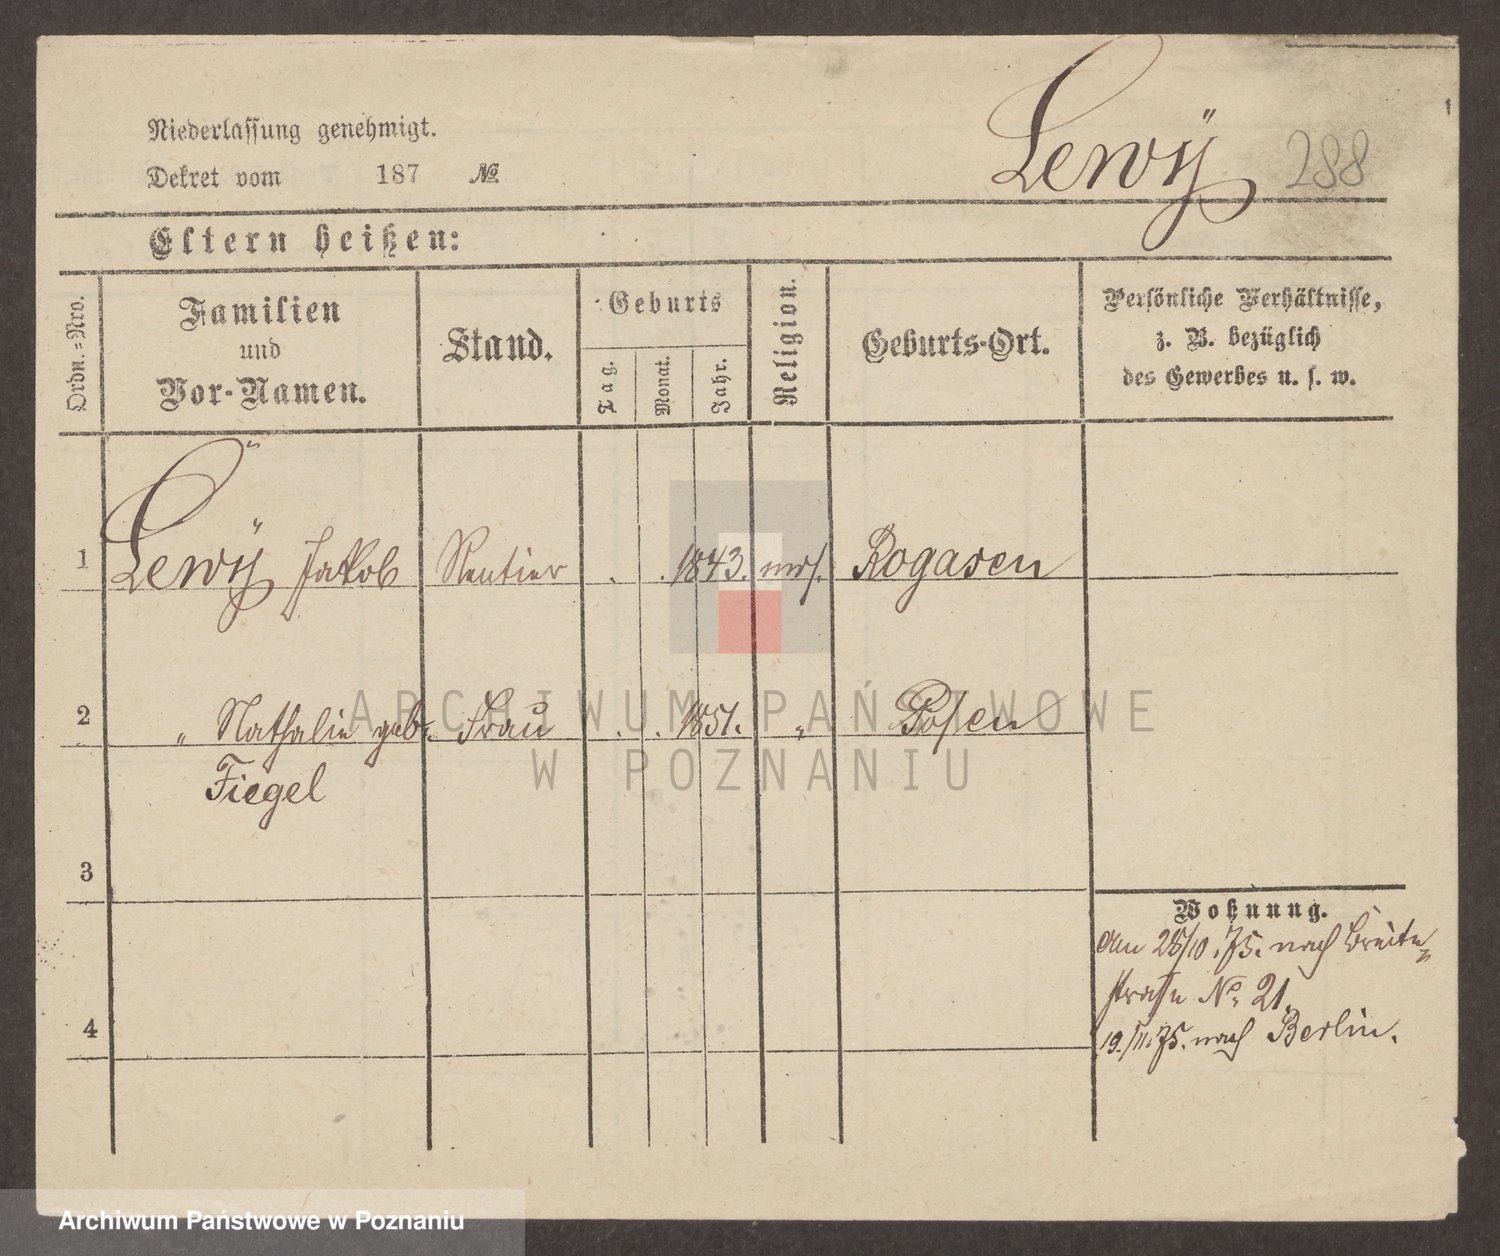 Lewÿ 288
Niederlassung genehmigt.
Dekret vom 187 №
Eltern heißen:
Ordn.=Nro.
Familien
und
Vor-Namen.
Stand.
Geburts
Tag.
Monat.
Jahr.
Religion.
Geburts-Ort.
Persönliche Verhältnisse,
z. B. bezüglich
des Gewerbes u. s. w.
1 Lewÿ Jakob Rentier . . 1843. mos. Rogasen
2 " Nathalie geb. Frau . . 1851. " Posen
Fiegel
3
4
Wohnung.
Am 28/10.75. nach Breite-
straße No. 21.
19./11.75. nach Berlin.
ARCHIWUM PAŃSTWOWE
W POZNANIU
Archiwum Państwowe w Poznaniu